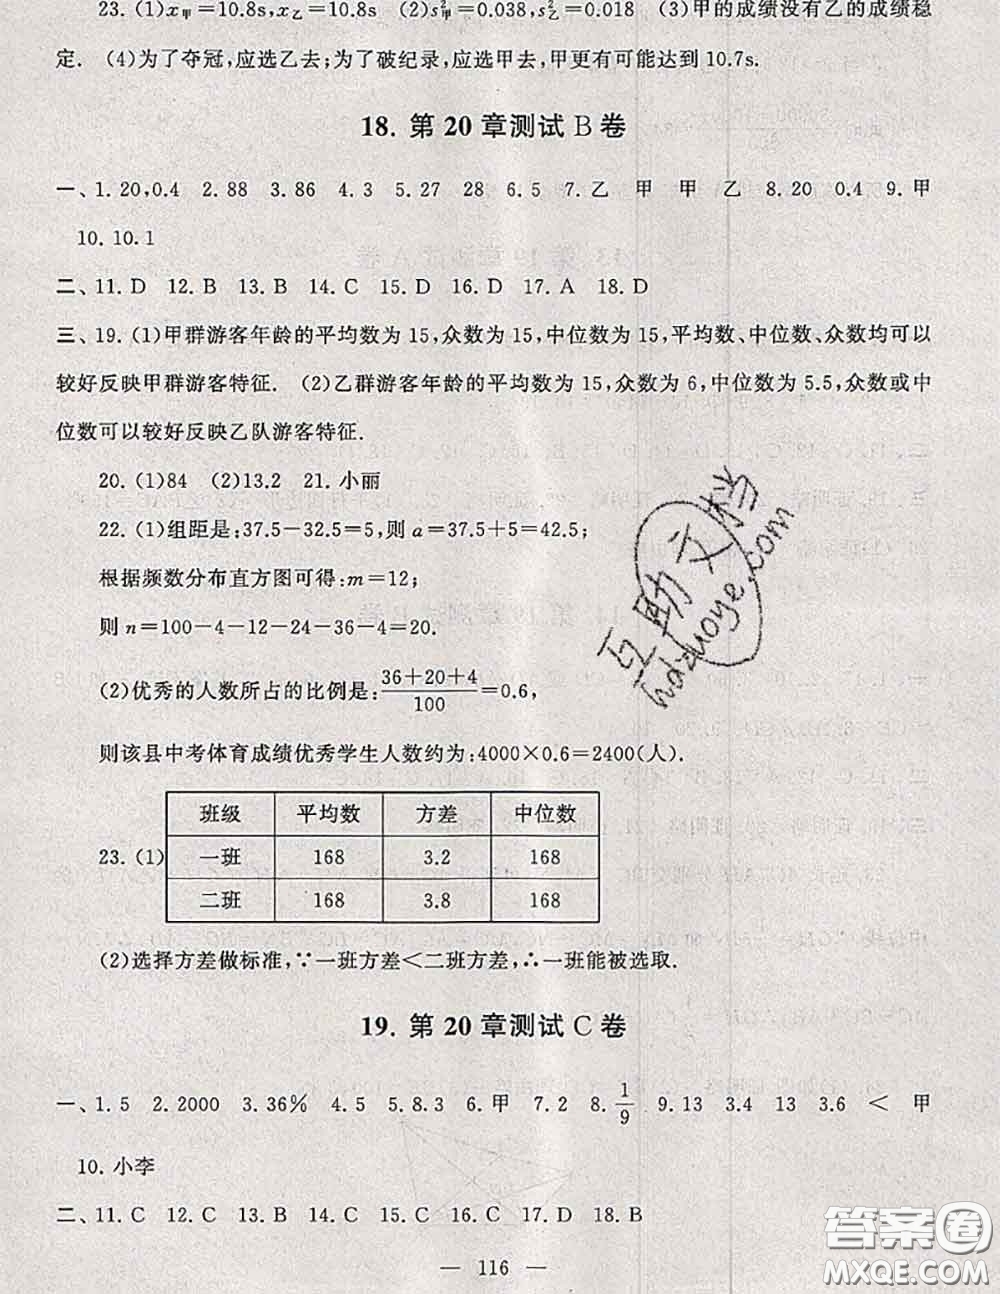 23. (1)x甲=10.8s,x乙=10.8s (2)s²甲=0.038,s²乙=0.018 (3)甲的成绩没有乙的成绩稳
定. (4)为了夺冠,应选乙去;为了破纪录,应选甲去,甲更有可能达到10.7s.
18. 第20章测试B卷
一、1.20,0.4 2.88 3.86 4.3 5.27 28 6.5 7.乙 甲 甲 乙 8.20 0.4 9.甲
10.10.1
二、11.D 12.B 13.B 14.C 15.D 16.D 17.A 18.D
三、19.(1)甲群游客年龄的平均数为15,众数为15,中位数为15,平均数、中位数、众数均可以
较好反映甲群游客特征. (2)乙群游客年龄的平均数为15,众数为6,中位数为5.5,众数或中
位数可以较好反映乙队游客特征.
20.(1)84 (2)13.2 21.小丽
22.(1)组距是:37.5-32.5=5,则a=37.5+5=42.5;
根据频数分布直方图可得:m=12;
则n=100-4-12-24-36-4=20.
(2)优秀的人数所占的比例是:(36+20+4)/100=0.6,
则该县中考体育成绩优秀学生人数约为:4000×0.6=2400(人).
23.(1)
班级 平均数 方差 中位数
一班 168 3.2 168
二班 168 3.8 168
(2)选择方差做标准,∵一班方差<二班方差,∴一班能被选取.
19. 第20章测试C卷
一、1.5 2.2000 3.36% 4.5 5.8.3 6.甲 7.2 8.1/9 9.13 3.4 13 3.6 < 甲
10.小李
二、11.C 12.C 13.B 14.C 15.C 16.C 17.D 18.B
— 116 —
互助文档
hdzuoye.com
答案圈
MXQE.COM